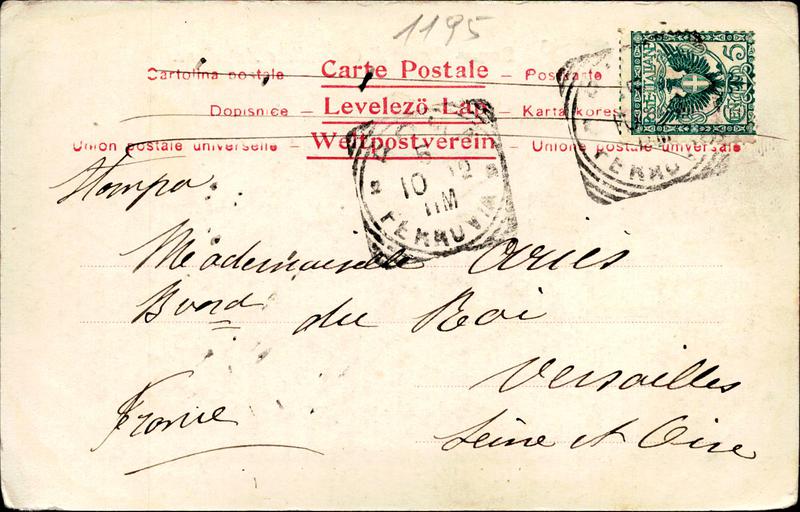 1195
Cartolina postale – Carte Postale – Postkarte
Dopisnice – Levelező-Lap – Karta kores
Union postale universelle – Weltpostverein – Unione postale universale
5
Stampa
5
10 12
11M
FERROVIA
FERRO
Mademoiselle Ariès
Bvard du Roi
Versailles
France
Seine et Oise